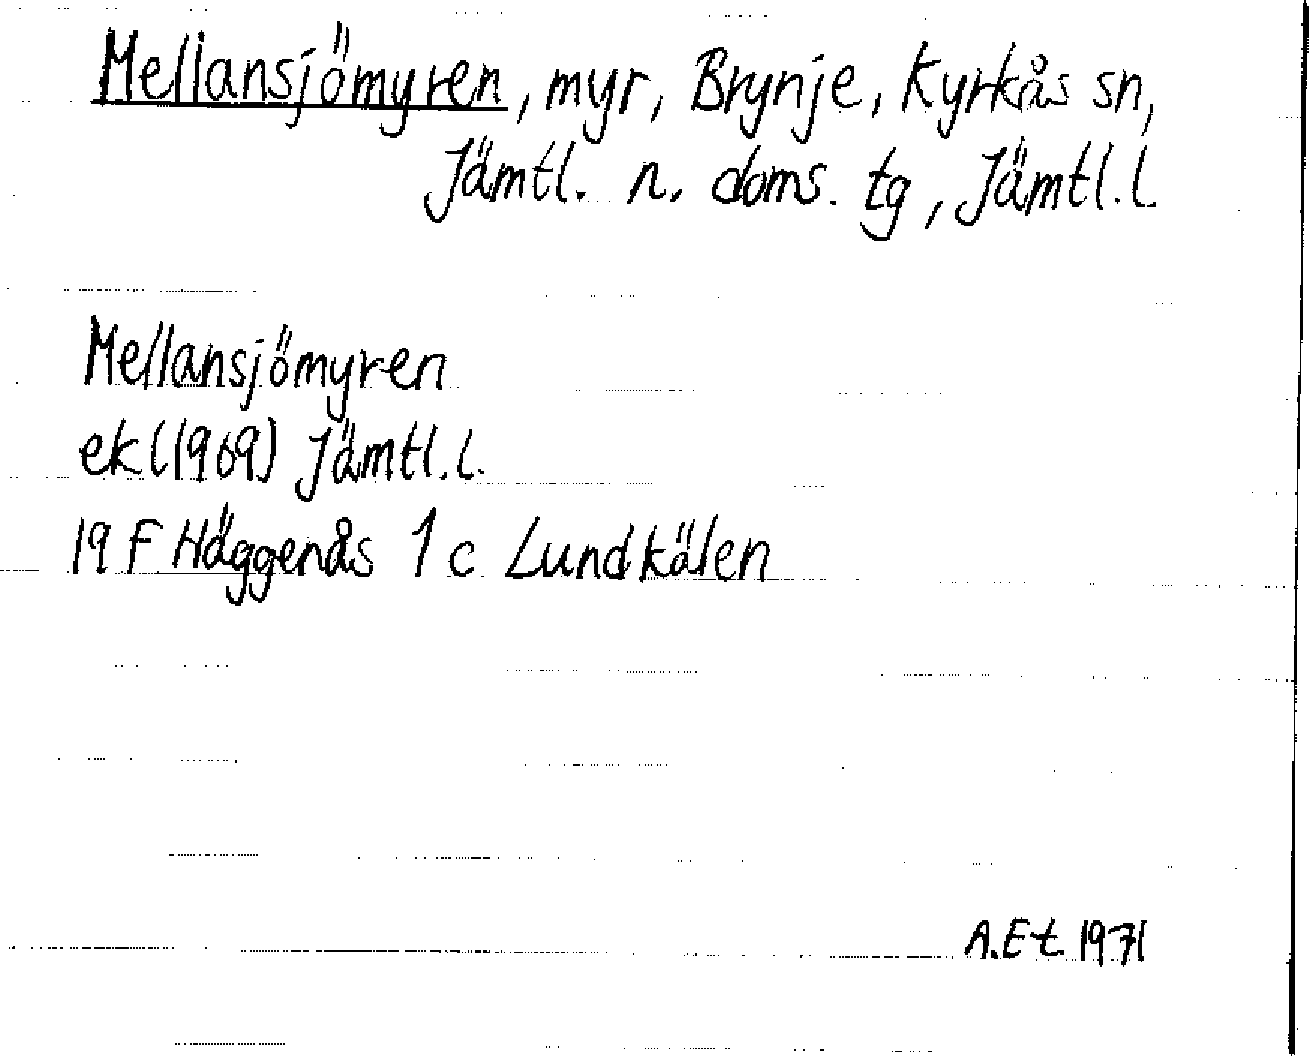 Mellansjömyren, myr, Brynje, Kyrkås sn,
Jämtl. n. doms. tg, Jämtl. l.
Mellansjömyren
ek (1969) Jämtl. l.
19 F Häggenås 1 c Lundkälen
A.Et. 1971